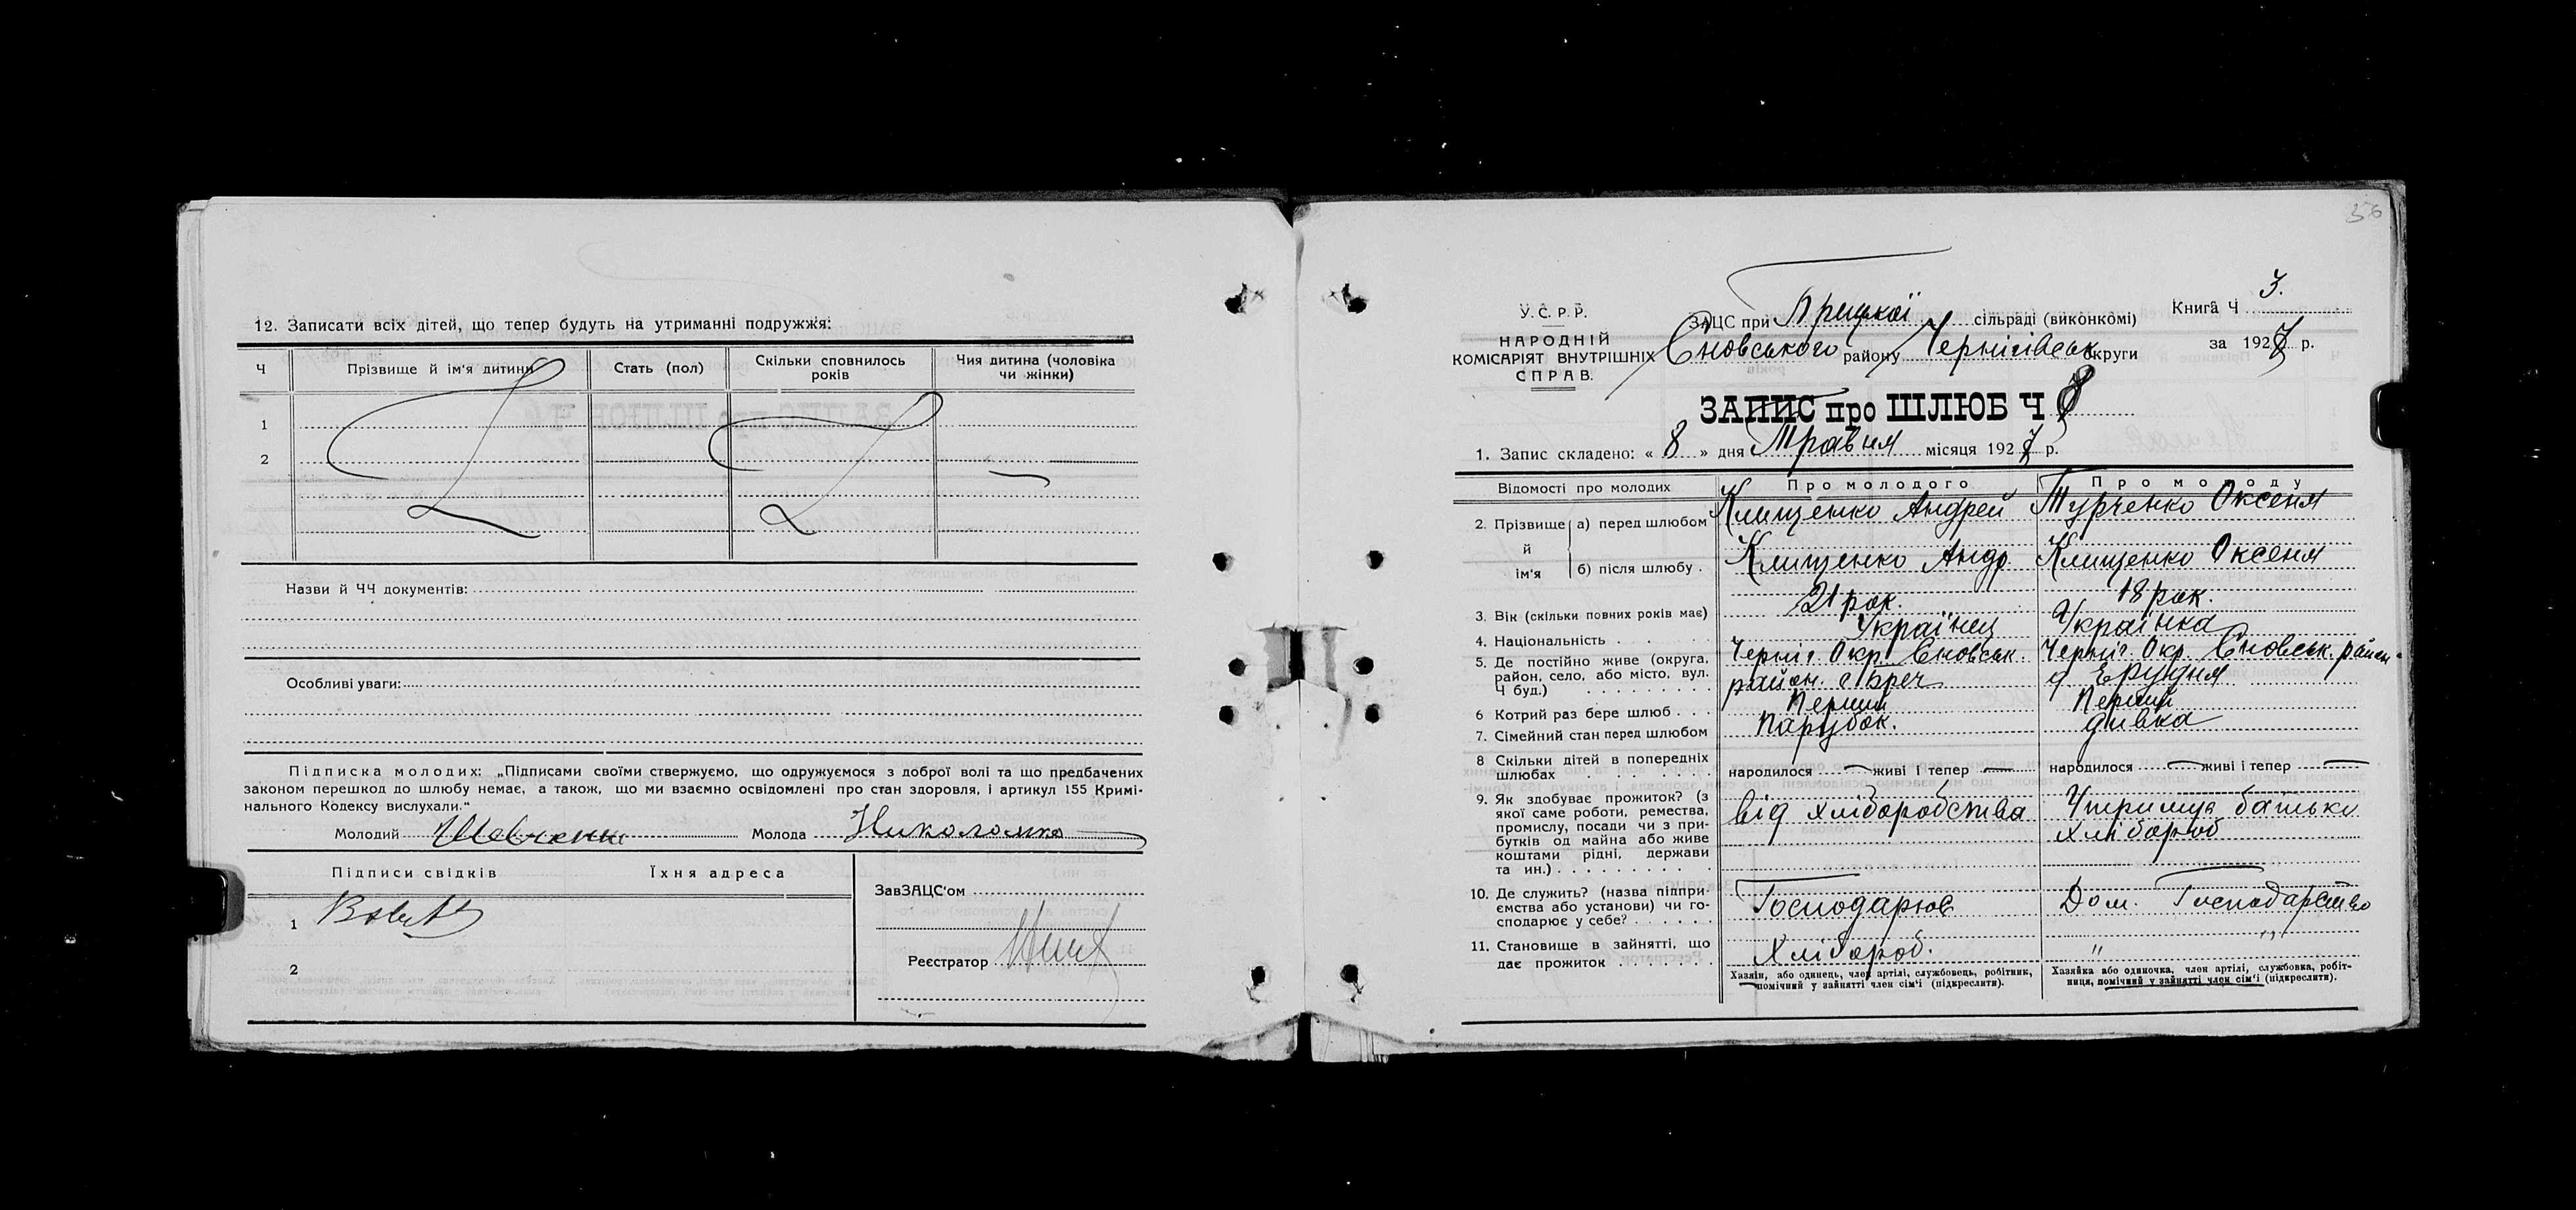 12. Записати всіх дітей, що тепер будуть на утриманні подружжя:
Ч Прізвище й ім'я дитини Стать (пол) Скільки сповнилось років Чия дитина (чоловіка чи жінки)
1
2
Назви й ЧЧ документів:
Особливі уваги:
Підписка молодих: „Підписами своїми стверджуємо, що одружуємося з доброї волі та що предбачених
законом перешкод до шлюбу немає, а також, що ми взаємно освідомлені про стан здоровля, і артикул 155 Кримі-
нального Кодексу вислухали."
Молодий Молода
Підписи свідків Їхня адреса
1
2
ЗавЗАЦС'ом
Реєстратор
56
У.С.Р.Р.
НАРОДНІЙ
КОМІСАРІЯТ ВНУТРІШНІХ
СПРАВ.
ЗАЦС при Брецкої сільраді (виконкомі)
Сновського району Чернігівськ округи
Книга Ч 3.
за 1927 р.
ЗАПИС про ШЛЮБ Ч 8
1. Запис складено: « 8 » дня Травня місяця 1927 р.
Відомості про молодих Про молодого Про молоду
2. Прізвище й ім'я а) перед шлюбом Клищенко Андрей Турченко Оксеня
б) після шлюбу Клищенко Андр Клищенко Оксеня
3. Вік (скільки повних років має) 21 рок. 18 рок.
4. Національність Українец Українка
5. Де постійно живе (округа, район, село, або місто, вул. Ч буд.) Черніг. Окр. Сновськ. район. с Бреч Черніг. Окр. Сновськ. район.
6 Котрий раз бере шлюб Перший Перший
7. Сімейний стан перед шлюбом Парубок. дивка
8 Скільки дітей в попередніх шлюбах народилося — живі і тепер — народилося — живі і тепер —
9. Як здобуває прожиток? (з якої саме роботи, ремества, промислу, посади чи з прибутків од майна або живе коштами рідні, держави та ин.) від хліборобства батьки хлібороб
10. Де служить? (назва підприємства або установи) чи господарює у себе? Господарює Дом. Господарство
11. Становище в зайнятті, що дає прожиток Хлібороб. "
Хазяїн, або одинець, член артілі, службовець, робітник, помічний у зайнятті член сім'ї (підкреслити).
Хазяйка або одиночка, член артілі, службовка, робітниця, помічний у зайнятті член сім'ї (підкреслити).